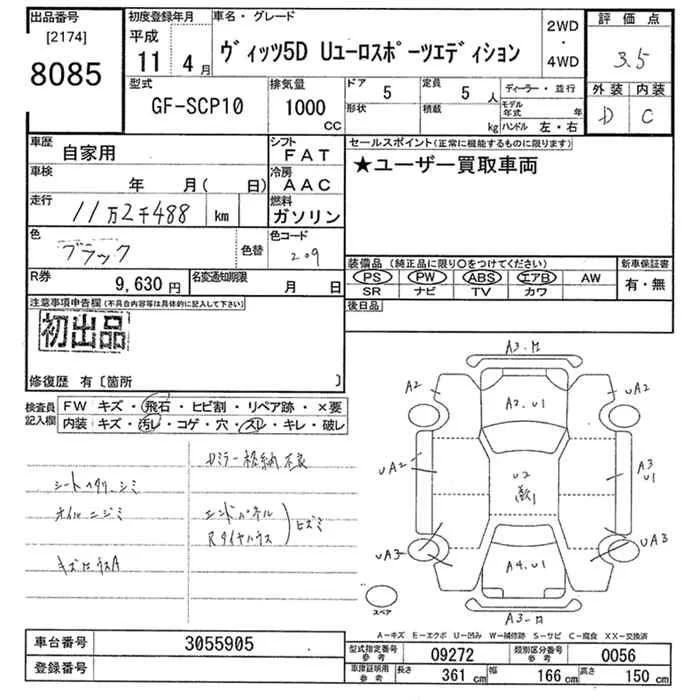 出品番号 [2174] 8085
初度登録年月 平成 11 4月
車名・グレード ヴィッツ5D Uユーロスポーツエディション
2WD・4WD
評価点 3.5
外装 内装
D C
型式 GF-SCP10
排気量 1000 CC
ドア 5 定員 5 人
形状 積載 kg
ディーラー・並行
モデル年式 年
ハンドル 左・右
車歴 自家用
シフト FAT
車検 年 月( 日)
冷房 AAC
走行 11万2千488 km
燃料 ガソリン
色 ブラック 色替
色コード 209
R券 9,630円
名変通知期限 月 日
セールスポイント(正常に機能するものに限ります)
★ユーザー買取車両
装備品(純正品に限り○をつけてください)
PS PW ABS エアB AW
SR ナビ TV カワ
新車保証書 有・無
後日品
注意事項申告欄(不具合内容等は具体的に記入して下さい)
初出品
修復歴 有〔箇所 〕
検査員記入欄
FW キズ・飛石・ヒビ割・リペア跡・×要
内装 キズ・汚レ・コゲ・穴・スレ・キレ・破レ
シートヘタリ シミ
オイルニジミ
ドミラー格納不良
エンドパネル
Rタイヤハウス
ヒズミ
A3・
A2
UA2
A2.U1
UA2
U2
A3
U1
UA3
UA3
A4.U1
A3・
スペア
A-キズ E-エクボ U-凹み W-補修跡 S-サビ C-腐食 XX-交換済
車台番号 3055905
登録番号
型式指定番号 参考 09272
類別区分番号 参考 0056
車庫証明用 参考 長さ 361 cm 幅 166 cm 高さ 150 cm